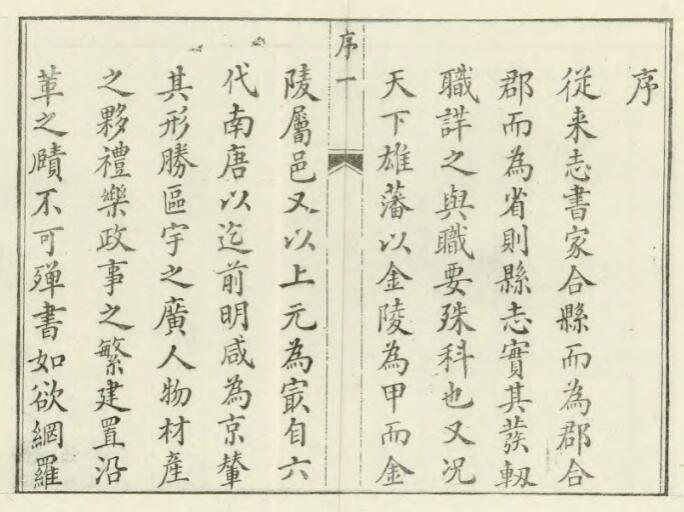 序
從来志書家合縣而為郡合
郡而為省則縣志實其發軔
職詳之與職要殊科也又况
天下雄藩以金陵為甲而金
序一
陵屬邑又以上元為冣自六
代南唐以迄前明咸為京輦
其形勝區宇之廣人物材產
之夥禮樂政事之繁建置沿
革之賾不可殫書如欲網羅